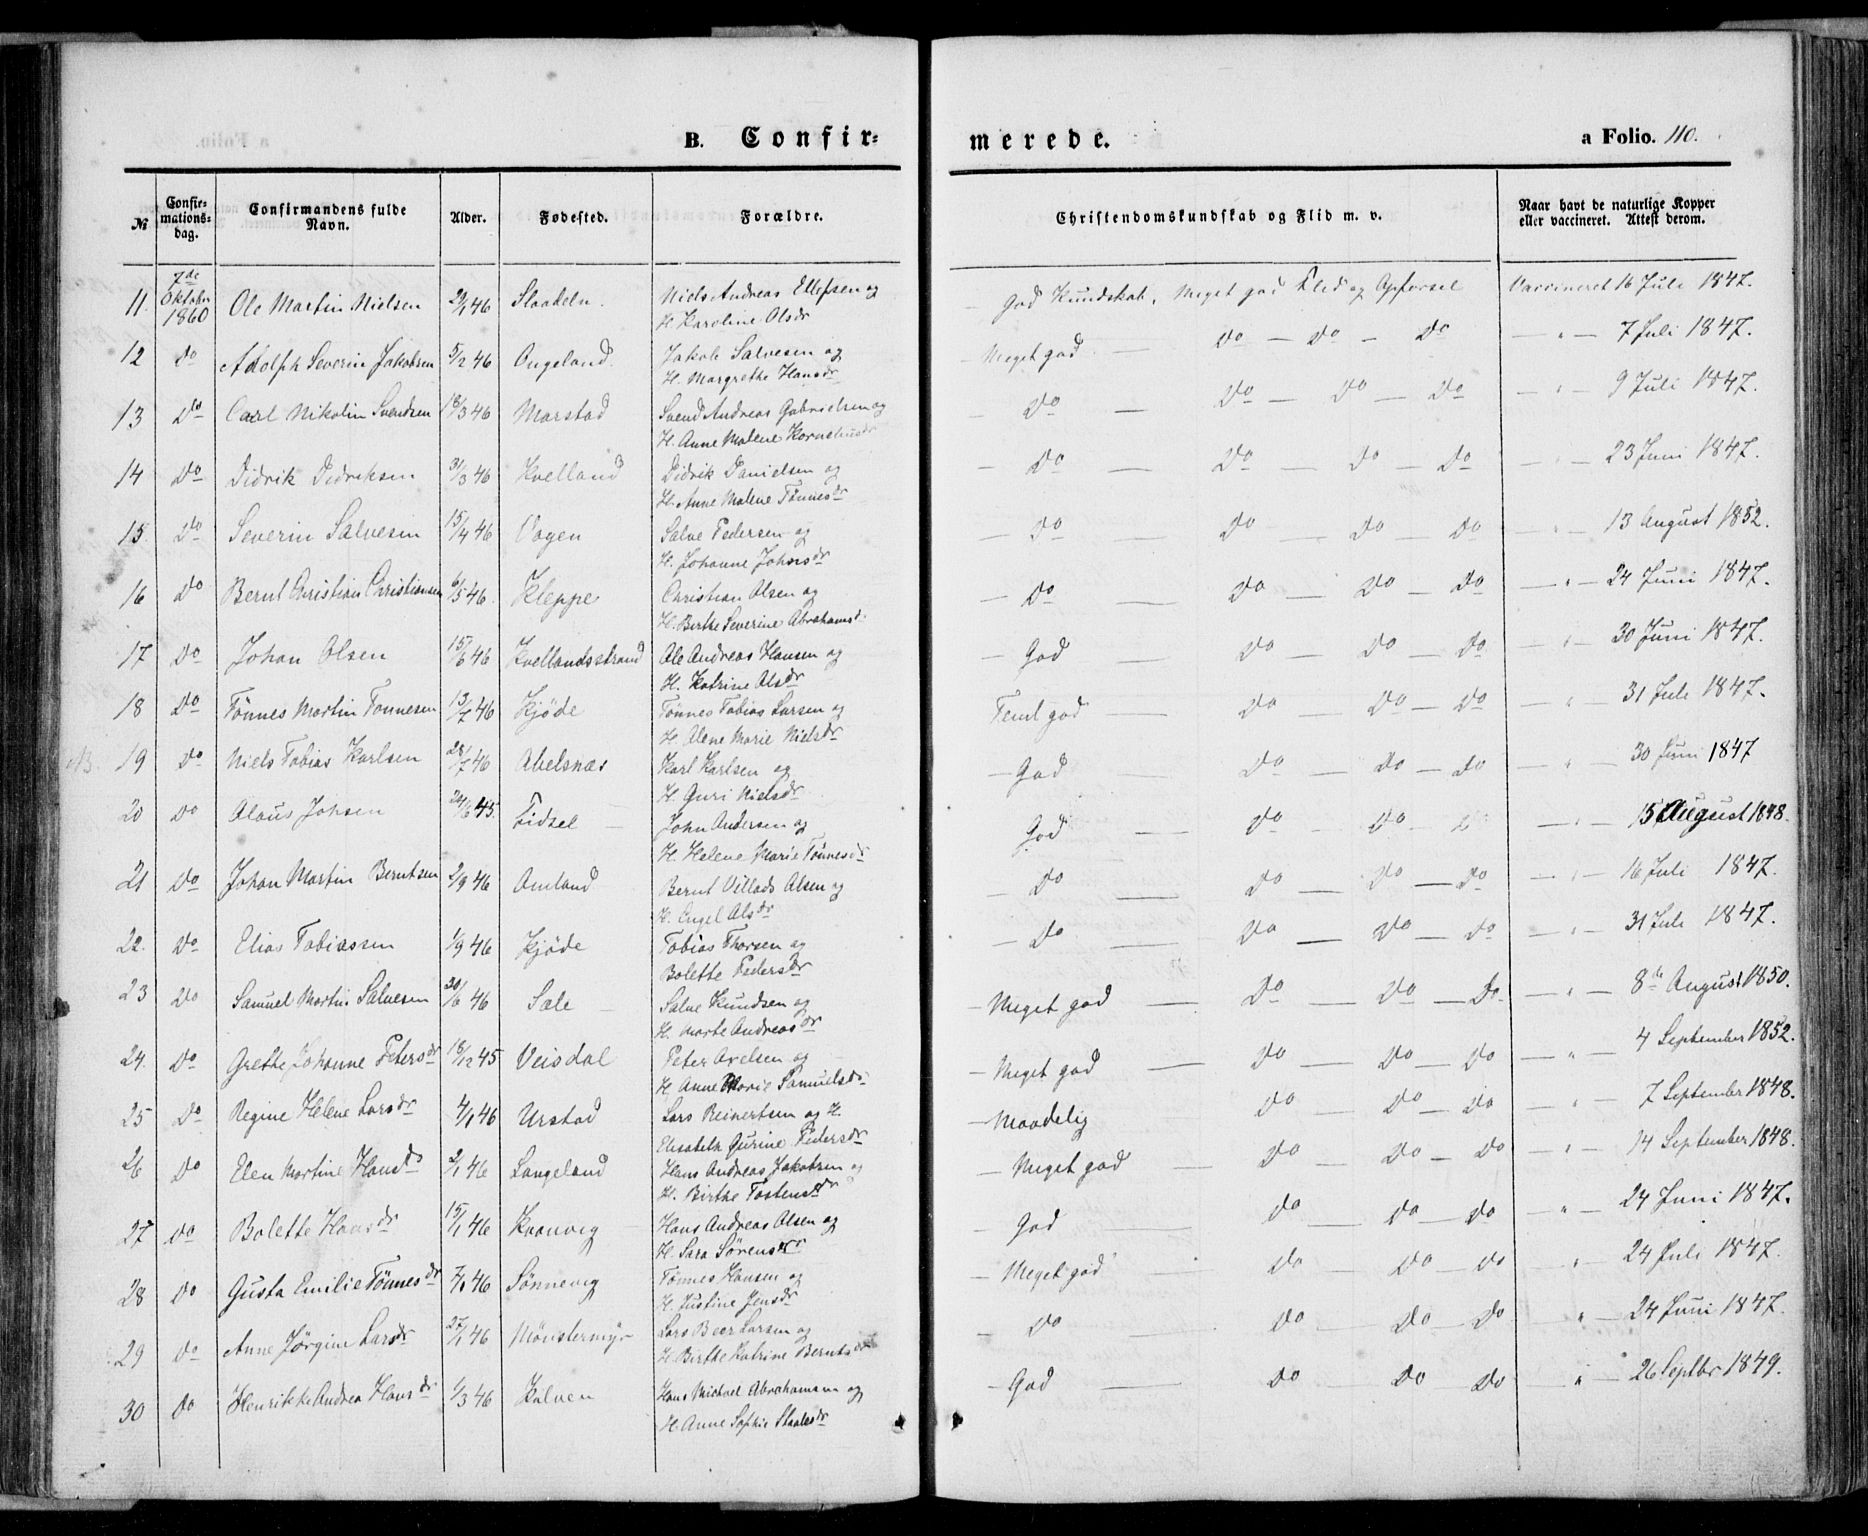 B. Confirmerede.
a Folio. 110.
№ | Confirmationsdag. | Confirmandens fulde Navn. | Alder. | Fødested. | Forældre. | Christendomskundskab og Flid m. v. | Naar havt de naturlige Kopper eller vaccineret. Attest derom.
11. 7de Oktober 1860 Ole Martin Nielsen 2/1 46 Niels Andreas Ellefsen og God Kundskab, Meget god Flid og Opførsel Vaccineret 16 Juli 1847.
H. Karoline Olsdr
12 Do Adolph Severin Jakobsen 5/2 46 Ongeland. Jakob Salvesen og Meget god — Do — Do — Do — " — 7 Juli 1847.
H. Margrethe Hansdr
13 Do Carl Nikolin Svendsen 18/3 46 Marstad Svend Andreas Gabrielsen og — Do — Do — Do — Do — " — 9 Juli 1847.
H. Anne Malene Korneliusdr
14 Do Didrik Didriksen 31/3 46 Kvelland Didrik Danielsen og — Do — Do — Do — Do — " — 23 Juni 1847.
H. Anne Malene Tønnesdr
15. Do Severin Salvesen 15/4 46 Vagen Salve Pedersen og — Do — Do — Do — Do — " — 13 August 1852.
H. Johanne Johnsdr
16 Do Bernt Christian Christiansen 6/5 46. Kleppe Christian Olsen og — Do — Do — Do — Do — " — 24 Juni 1847.
H. Birthe Severine Abrahamsd.
17 Do Johan Olsen 15/6 46 Kvellandsstrand Ole Andreas Hansen og — God — Do — Do — Do — " — 30 Juni 1847.
H. Katrine Olsdr
18 Do Tønnes Martin Tønnesen 13/7 46 Kjöde Tønnes Tobias Larsen og Teml god — Do — Do — Do — " — 31 Juli 1847.
H. Alene Marie Nielsdr
NB. 19 Do Niels Tobias Karlsen 28/7 46 Abelsnæs Karl Karlsen og — God — Do — Do — Do — " — 30 Juni 1847
H. Guri Nielsdr
20 Do Olaus Johsen 24/6 45. Fidsel — John Andersen og God — Do — Do — Do — " — 15 August 1848.
H. Helene Marie Tønnesdr
21 Do Johan Martin Berntsen 2/9 46 Omland Bernt Villads Olsen og — Do — Do — Do — Do — " — 16 Juli 1847.
H. Engel Olsdr
22. Do Elias Tobiassen 1/9 46 Kjöde Tobias Thorsen og — Do — Do — Do — Do — " — 31 Juli 1847.
Bolette Pedersdr
23 Do Samuel Martin Salvesen 30/6 46 Sæle — Salve Knudsen og — Meget god — Do — Do — Do — " — 8de August 1850.
H. Marte Andreasdr
24. Do Grethe Johanne Petersdr 18/12 45 Veisdal Peter Axelsen og — Meget god — Do — Do — Do — " — 4 September 1852.
H. Anne Marie Samuelsdr
25 Do Regine Helene Larsdr 4/1 46 Urstad Lars Reinertsen og H. — Maadelig Do — Do — Do " — 7 September 1848.
Elisabeth Gurine Pedersdr
26 Do Elen Martine Hansdr 2/1 46 Langeland Hans Andreas Jakobsen og — Meget god — Do — Do — Do — " — 14 September 1848.
H. Birthe Tostensdr
27 Do Bolette Hansdr 15/1 46 Kvanvig Hans Andreas Olsen og — God Do — Do — Do — " — 24 Juni 1847.
H. Sara Sørensdr
28 Do Gusta Emilie Tønnesdr 7/1 46 Sønnevig Tønnes Hansen og — Meget god — Do — Do — Do " — 24 Juli 1847.
H. Justine Jensdr
29 Do Anne Jörgine Larsdr 27/1 46 Mønstermyr Lars Beer Larsen og — Do Do — Do — Do " — 24 Juni 1847.
H. Birthe Katrine Berntsdr
30 Do Henrikke Andrea Hansdr 1/3 46 Kalven Hans Michael Abrahamsen og — God — Do — Do Do " — 26 Septbr 1849.
H. Anne Sophie Staalesdr